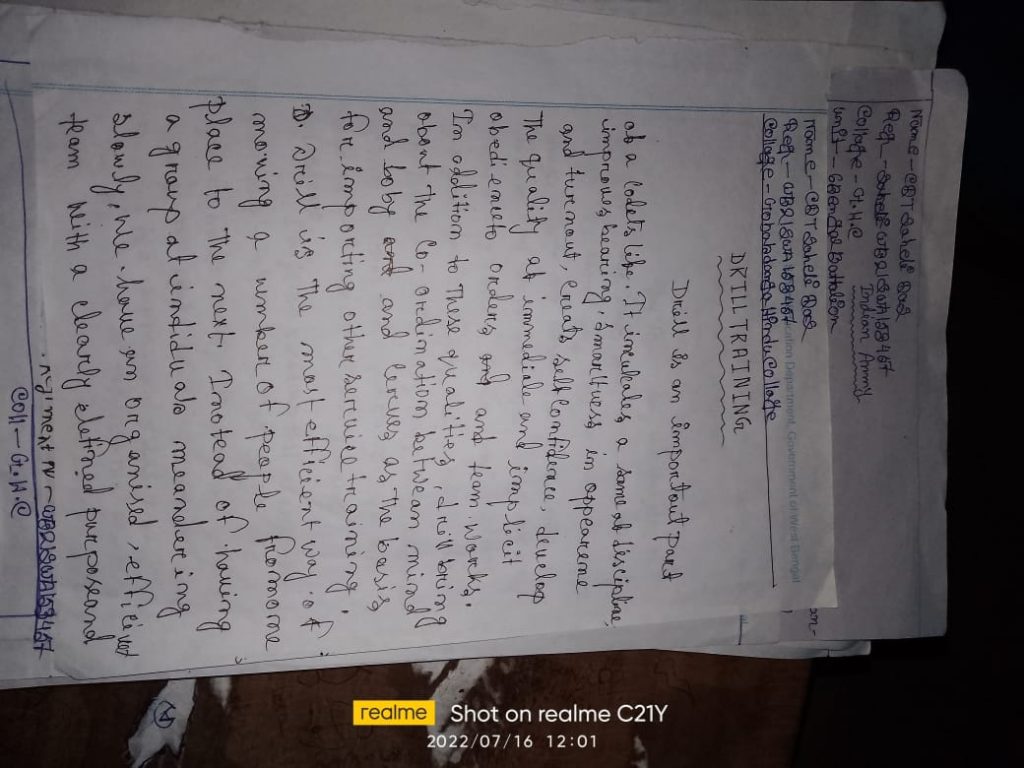 Name - CDT Saheli Das
College - G.H.C
Indian Army
Unit -
Name - CDT Saheli Das
College - Gobardanga Hindu College
cation Department, Government of West Bengal
DRILL TRAINING
Drill is an important part
of a cadets life. It inculcates a sense of
improves bearing, smartness in
and turnout, creats self confidence, develop
The quality of immediate and implicit
obedience to orders and and team works.
In addition to these qualities, drill bring
about the Co-ordination between mind
and body and and serves as the basis
for imparting other service training.
Drill is the most efficient way of
moving a number of people from one
place to the next. Instead of having
a group of individuals meandering
slowly, We have an organised,
team With a clearly defined purpose and
Coll - G.H.C
realme Shot on realme C21Y
2022/07/16 12:01